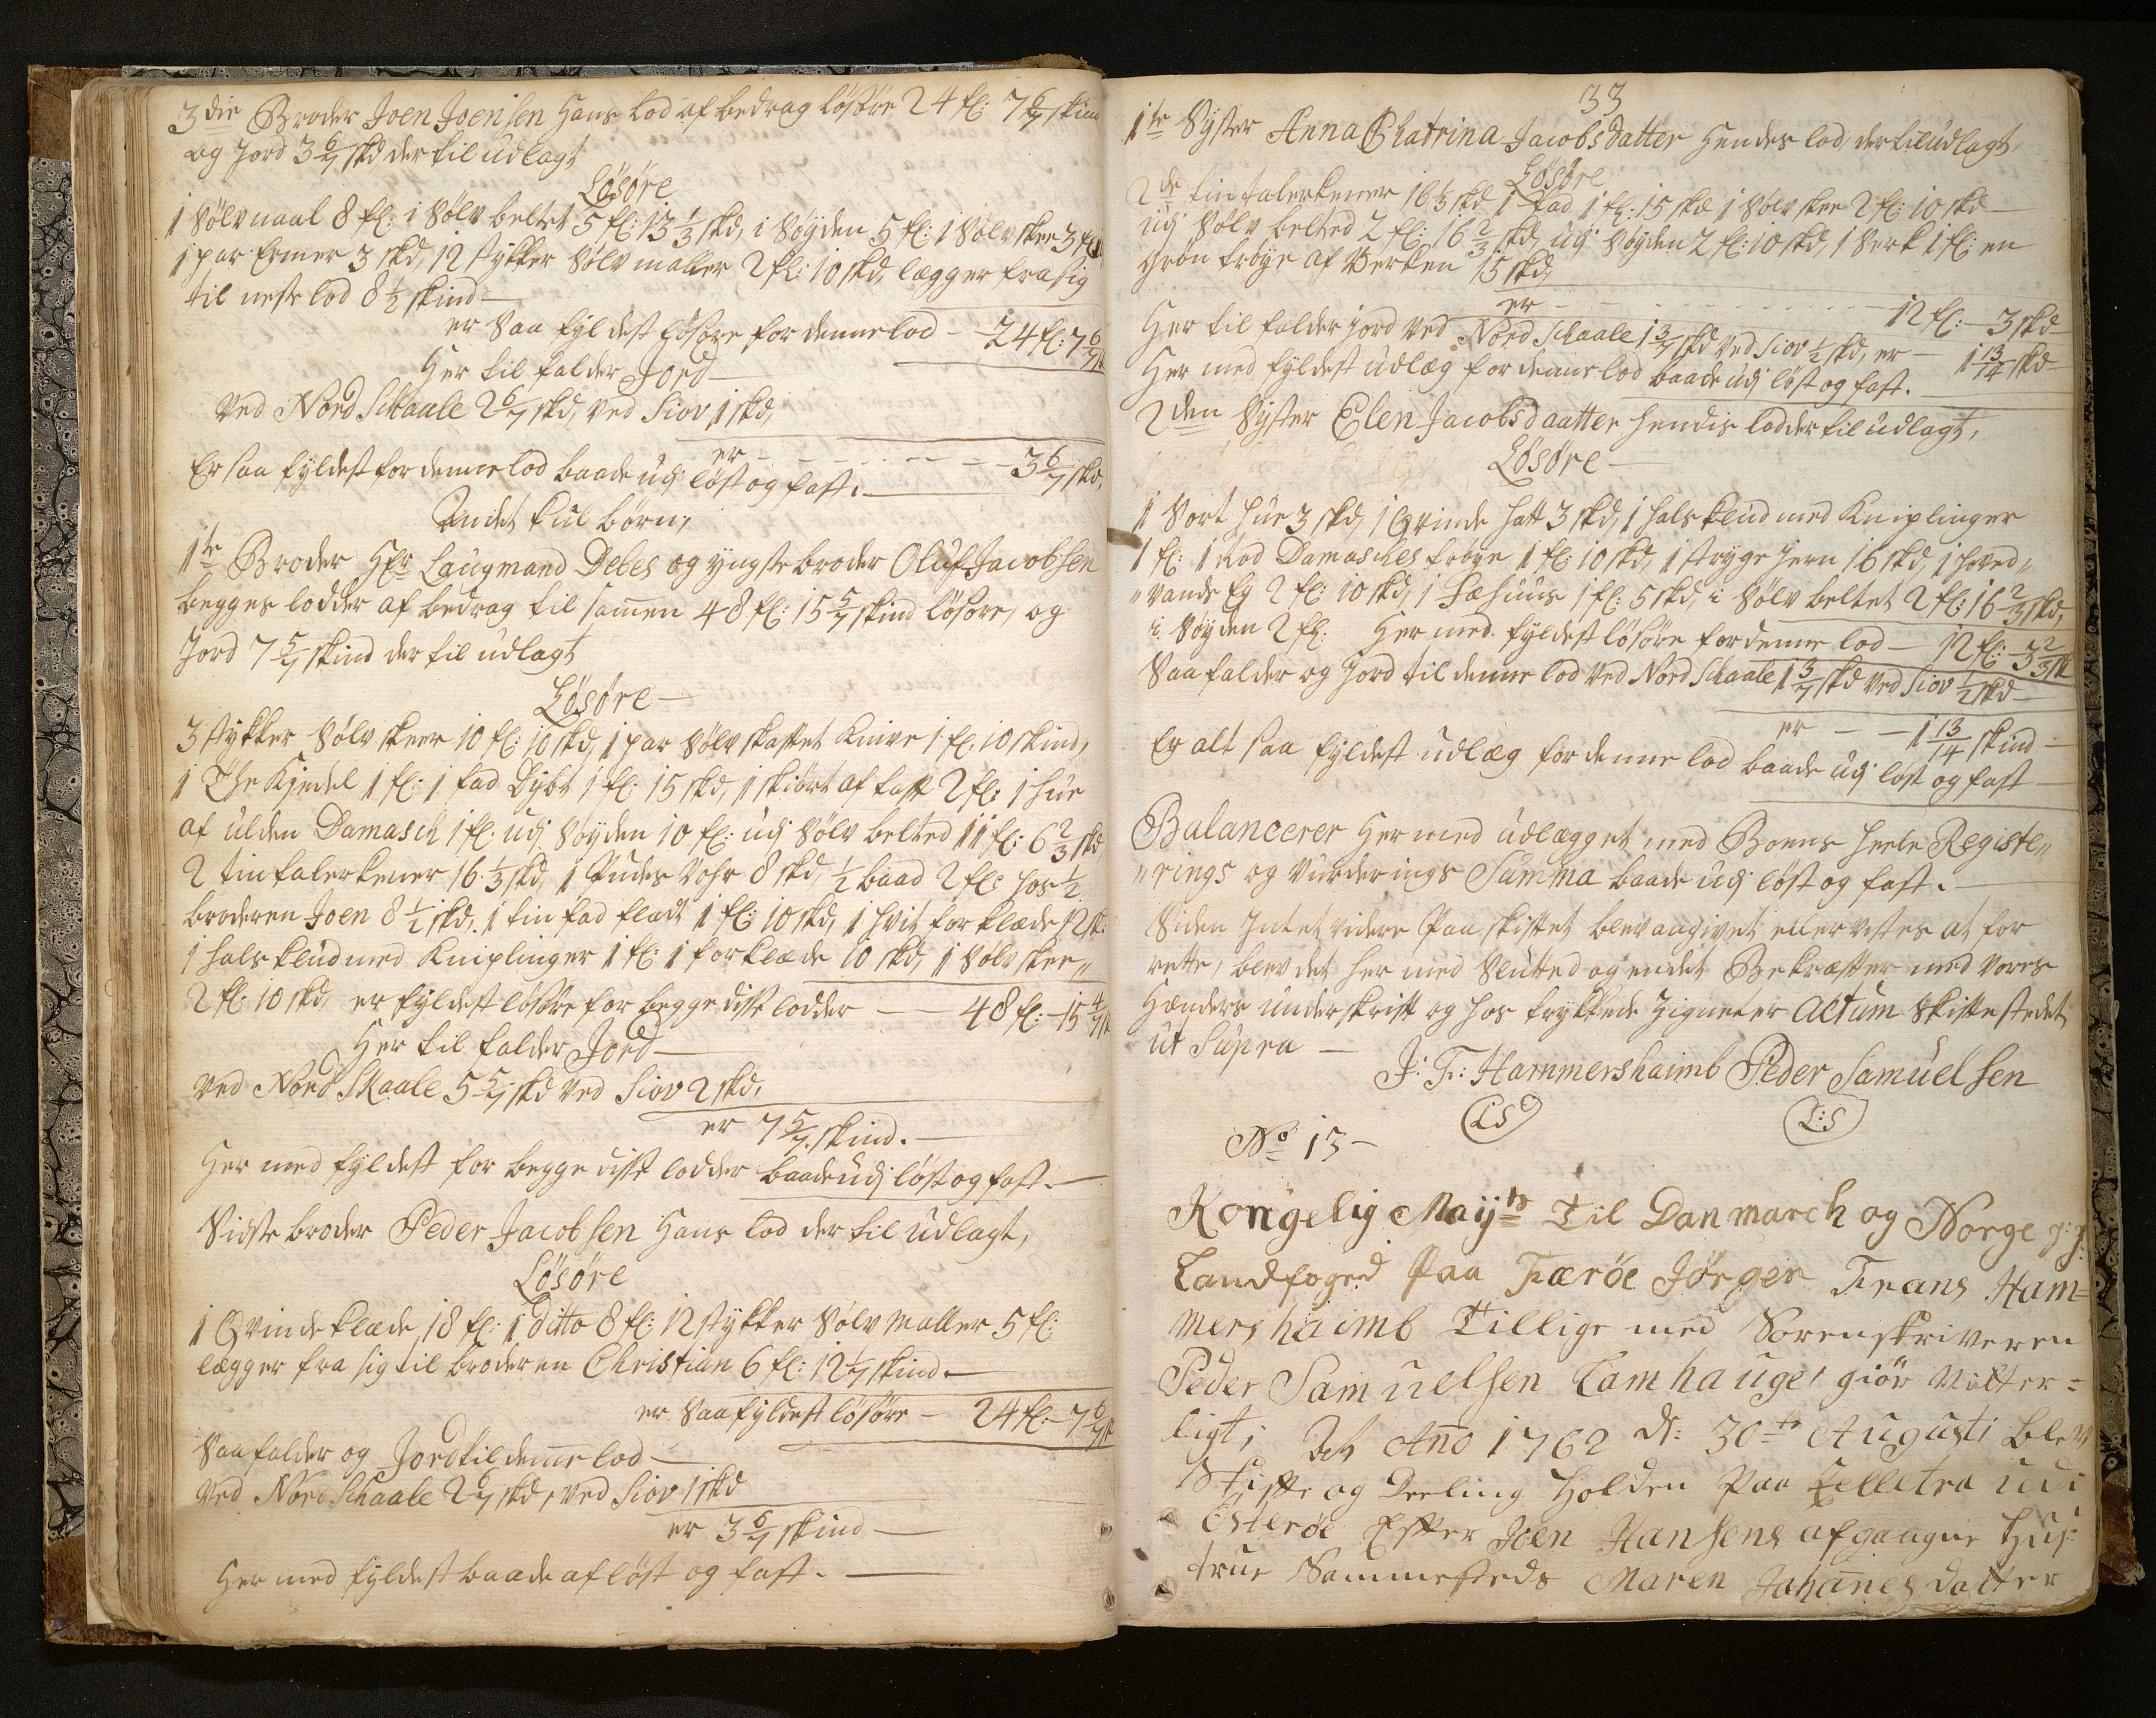 3die Broder Joen Joensen Hans lod af bedrag løsøre 24 fl: 7 6/7 skind
og Jord 3 6/7 skd der til udlagt
Løsøre
1 Sølvnaal 8 fl: i Sølv beltet 5 fl: 13 1/3 skd, i Søyden 5 fl: 1 Sølv skee 3 fl
1 par Ermer 3 skd, 12 stykker Sølv maller 2 fl: 10 skd, legger fra sig
til neste lod 8 1/2 skind —
er Saa fyldest løsøre for denne lod — 24 fl: 7 6/7 sk
Her til falder Jord —
ved Nord Skaale 2 6/7 skd, ved Siov 1 skd,
er — 3 6/7 skd,
Er saa fyldest for denne lod baade udj løst og fast. —
Andet kul børn,
1te Broder Hr Laugmand Debes og yngste broder Oluf Jacobsen
begges lodder af bedrag til samen 48 fl: 15 5/7 skind løsøre, og
Jord 7 5/7 skind der til udlagt
Løsøre —
3 stykker Sølv skeer 10 fl: 10 skd, 1 par Sølv skaftet Knive 1 fl: 10 skind,
1 The Kjedel 1 fl: 1 fad dybt 1 fl: 15 skd, 1 skiørt af 2 fl: 1 hue
af ulden Damasch 1 fl: udj Søyden 10 fl: udj Sølv belted 11 fl: 6 2/3 skd
2 tintalerkener 16 1/3 skd, 1 Pudes Vohr 8 skd, 1/2 baad 2 fl: hos 1/2
broderen Joen 8 1/2 skd, 1 tin fad fladt 1 fl: 10 skd, 1 hvit forklæde 12 sk:
1 halsklud med Kniplinger 1 fl: 1 forklæde 10 skd, 1 Sølv skee„
2 fl: 10 skd, er fyldest løsøre for begge disse lodder — 48 fl: 15 4/7 sk
Her til falder Jord —
ved Nord Skaale 5 5/7 skd ved Siov 2 skd,
er 7 5/7 skind. —
Her med fyldest for begge disse lodder baade udj løst og fast. —
Sidste broder Peder Jacobsen Hans lod der til udlagt,
Løsøre
1 Qvindeklæde 18 fl: 1 ditto 8 fl: 12 stykker Sølv maller 5 fl:
legger fra sig til broderen Christian 6 fl: 12 1/7 skind. —
er Saa fyldest løsøre — 24 fl: 7 6/7 sk
Saa falder og Jord til denne lod —
ved Nord Schaale 2 6/7 skd, ved Siov 1 skd
er 3 6/7 skind —
Her med fyldest baade af løst og fast. —
33
1te Syster Anna Chatrina Jacobsdatter Hendes lod, der til udlagt,
Løsøre
2de tintalerkener 16 1/3 skd 1 fad 1 fl: 15 skd 1 Sølv skee 2 fl: 10 skd —
udj Sølv belted 2 fl: 16 2/3 skd, udj Søyden 2 fl: 10 skd, 1 Serk 1 fl: en
grøn trøye af Verken 15 skd,
er — 12 fl: — 3 skd
Her til falder jord ved Nord Schaale 1 3/7 skd ved Siov 1/2 skd, er — 1 13/14 skd
Her med fyldest udlæg for denne lod baade udj løst og fast. —
2den Syster Elen Jacobsdaatter hendis lod der til udlagt,
Løsøre —
1 Sort hue 3 skd, 1 Qvinde hatt 3 skd, 1 halsklud med Kniplinger
1 fl: 1 Rod Damasches trøye 1 fl: 10 skd, 1 stryge jern 16 skd, 1 hoved„
„vande Eg 2 fl: 10 skd, 1 Fæhuus 1 fl: 5 skd, i Sølv beltet 2 fl: 16 2/3 skd,
i Søyden 2 fl: Her med fyldest løsøre for denne lod — 12 fl: 3 2/3 sk
Saa falder og jord til denne lod ved Nord Schaale 1 3/7 skd ved Siov 1/2 skd —
er — — 1 13/14 skind —
Er alt saa fyldest udlæg for denne lod baade udj løst og fast
Balancerer Her med udlægget med Boens heele Registe„
„rings og Vurderings Summa baade udj løst og fast. —
Siden Intet videre Paa skiftet blev angivet eller vistes at for
rette, blev det her med Sluttet og endet Bekræfter med vores
Hænders underskrift og hos trykkede Zigneter Actum Skiftestedet
ut Supra —
J: F: Hammershaimb Peder Samuelsen
LS L:S
No 13 —
Kongelig Mayts Til Danmarch og Norge p: p:
Landfoged Paa Færöe Jörgen Frans Ham=
mershaimb Tillige med Sorenskriveren
Peder Samuelsen Lamhauge, giör Vitter=
ligt; At Ano 1762 d: 30te Augusti blev
Skifte og Deeling holden Paa Selletra udi
Österöe Efter Joen Hansens afgangne Hus=
true Sammesteds Maren Johanesdatter